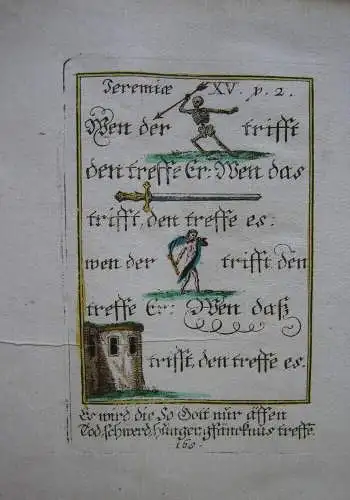 Jeremiæ XV. v. 2.
Wen der trifft
den treffe Er: Wen das
trifft, den treffe es:
wen der trifft den
treffe Er: Wen daß
trifft, den treffe es.
Es wird die So Gott nur äffen
Tod, schwerd, hunger, gfäncknus treffe.
160.